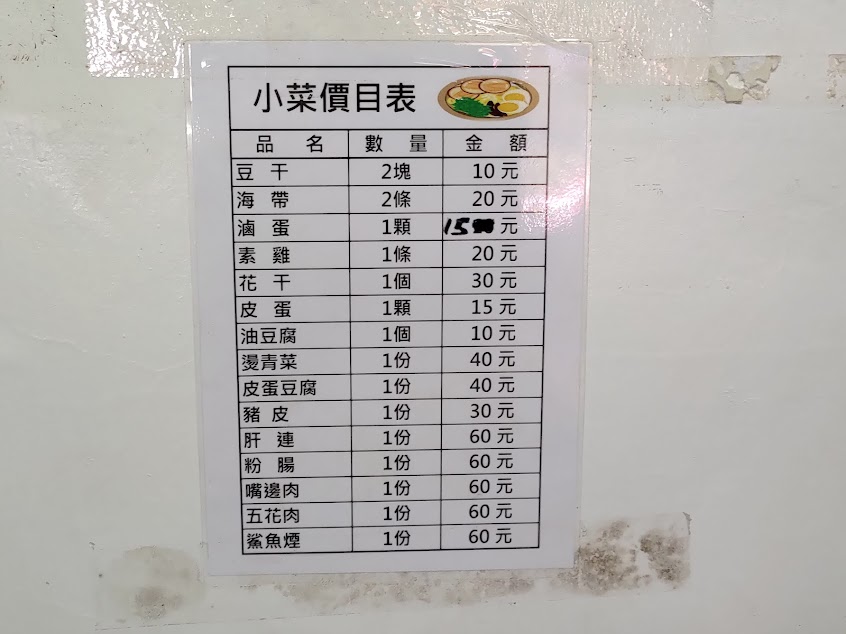 小菜價目表
品 名 數 量 金 額
豆 干 2塊 10 元
海 帶 2條 20 元
滷 蛋 1顆 15 元
素 雞 1條 20 元
花 干 1個 30 元
皮 蛋 1顆 15 元
油豆腐 1個 10 元
燙青菜 1份 40 元
皮蛋豆腐 1份 40 元
豬 皮 1份 30 元
肝 連 1份 60 元
粉 腸 1份 60 元
嘴邊肉 1份 60 元
五花肉 1份 60 元
鯊魚煙 1份 60 元